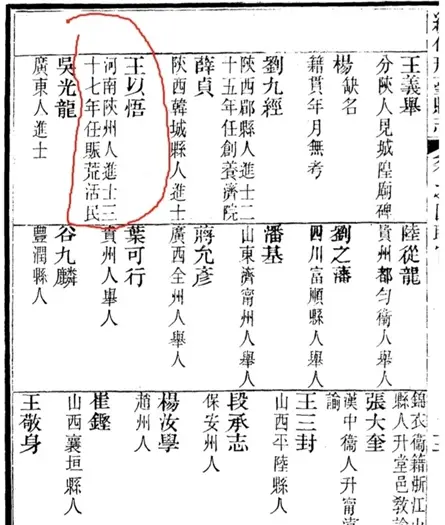 王義舉
分陝人見城隍廟碑
楊缺名
籍貫年月無考
劉九經
陝西郿縣人進士二
十五年任創養濟院
薛貞
陝西韓城縣人進士
王以悟
河南陝州人進士三
十七年任賑荒活民
吳光龍
廣東人進士
陸從龍
貴州都勻衛人舉人
劉之藩
四川富順縣人舉人
潘基
山東濟甯州人舉人
蔣允彥
廣西全州人舉人
葉可行
貴州人舉人
谷九麟
豐潤縣人
錦衣衛籍浙江山
縣人升堂邑教諭
張大奎
漢中衛人升甯
諭
王三封
山西平陸縣人
段承志
保安州人
楊汝學
趙州人
崔鏗
山西襄垣縣人
王敬身